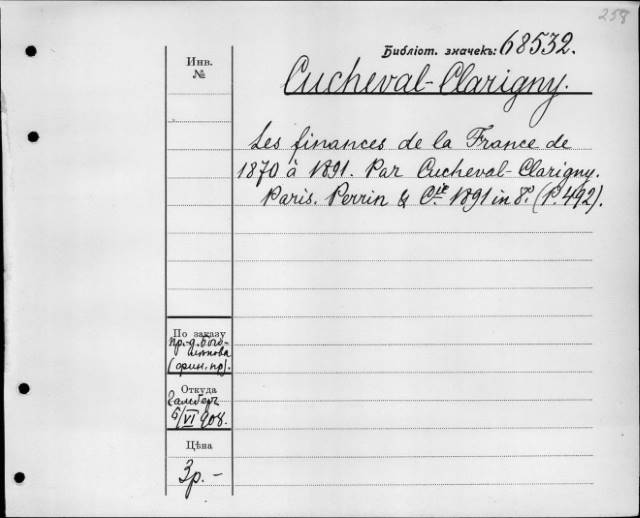 258
Библіот. значекъ: 68532.
Инв.
№
Cucheval-Clarigny.
Les finances de la France de
1870 à 1891. Par Cucheval-Clarigny.
Paris. Perrin & Cie 1891 in 8º. (P. 492).
По заказу
пр.-д.
(фин. пр).
Откуда
5/VI 908.
Цѣна
3р. –